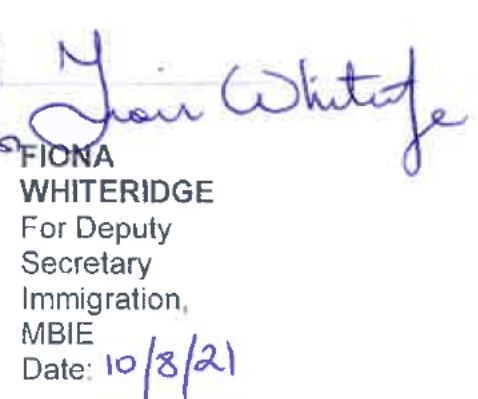 Fiona Whiteridge
FIONA
WHITERIDGE
For Deputy
Secretary
Immigration,
MBIE
Date: 10/8/21